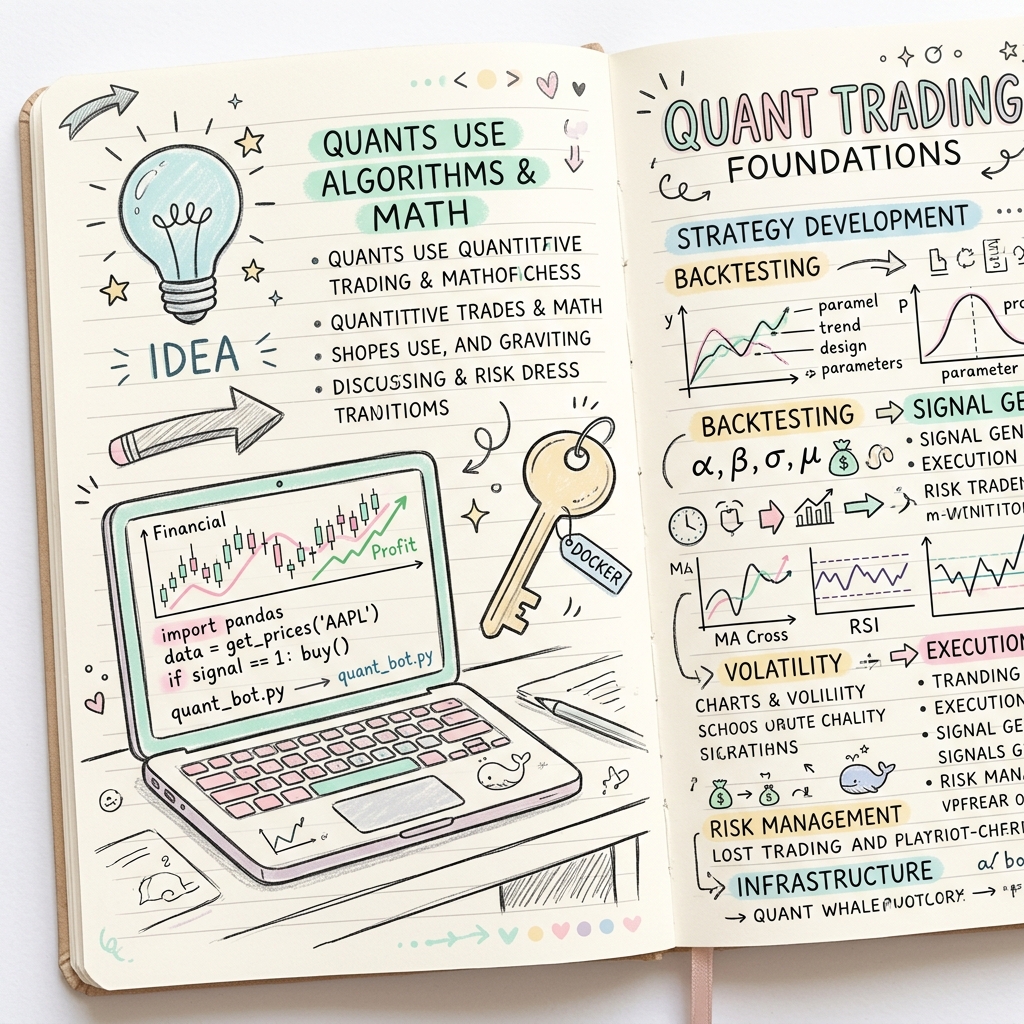 QUANTS USE
ALGORITHMS &
MATH
• QUANTS USE QUANTITFIVE
TRADING & MATHOFICHESS
• QUANTITTIVE TRADES & MATH
• SHOPES USE, AND GRAVITING
• DISCUSSING & RISK DRESS
IDEA
Financial
Profit
import pandas
data = get_prices('AAPL')
if signal == 1: buy()
quant_bot.py → quant_bot.py
DOCKER
QUANT TRADING
FOUNDATIONS
STRATEGY DEVELOPMENT
BACKTESTING
y
paramel
trend
design
parameters
P
parameter
BACKTESTING
SIGNAL GE
α, β, σ, μ
$
• SIGNAL GEN
• EXECUTION
RISK TRADE
MA
MA Cross
RSI
VOLATILITY
EXECUTION
CHARTS & VOLILIITY
• TRANDING
• EXECUTION
• SIGNAL GE
SIGNALS G
• RISK MANA
$ → $
RISK MANAGEMENT
LOST TRADING AND
INFRASTRUCTURE
→ QUANT